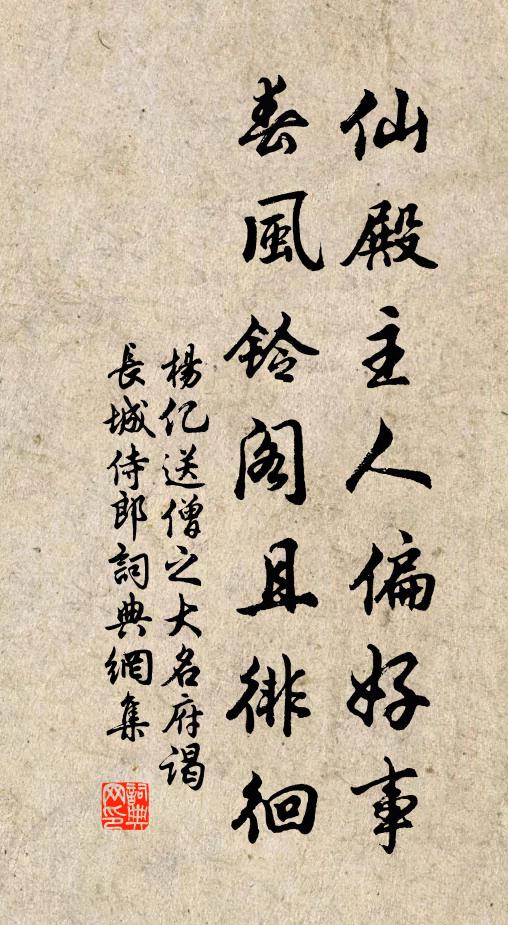 仙殿主人偏好事
春風鈴阁且徘徊
楊亿送僧之大名府谒
長城侍郎詞典網集
詞典網印